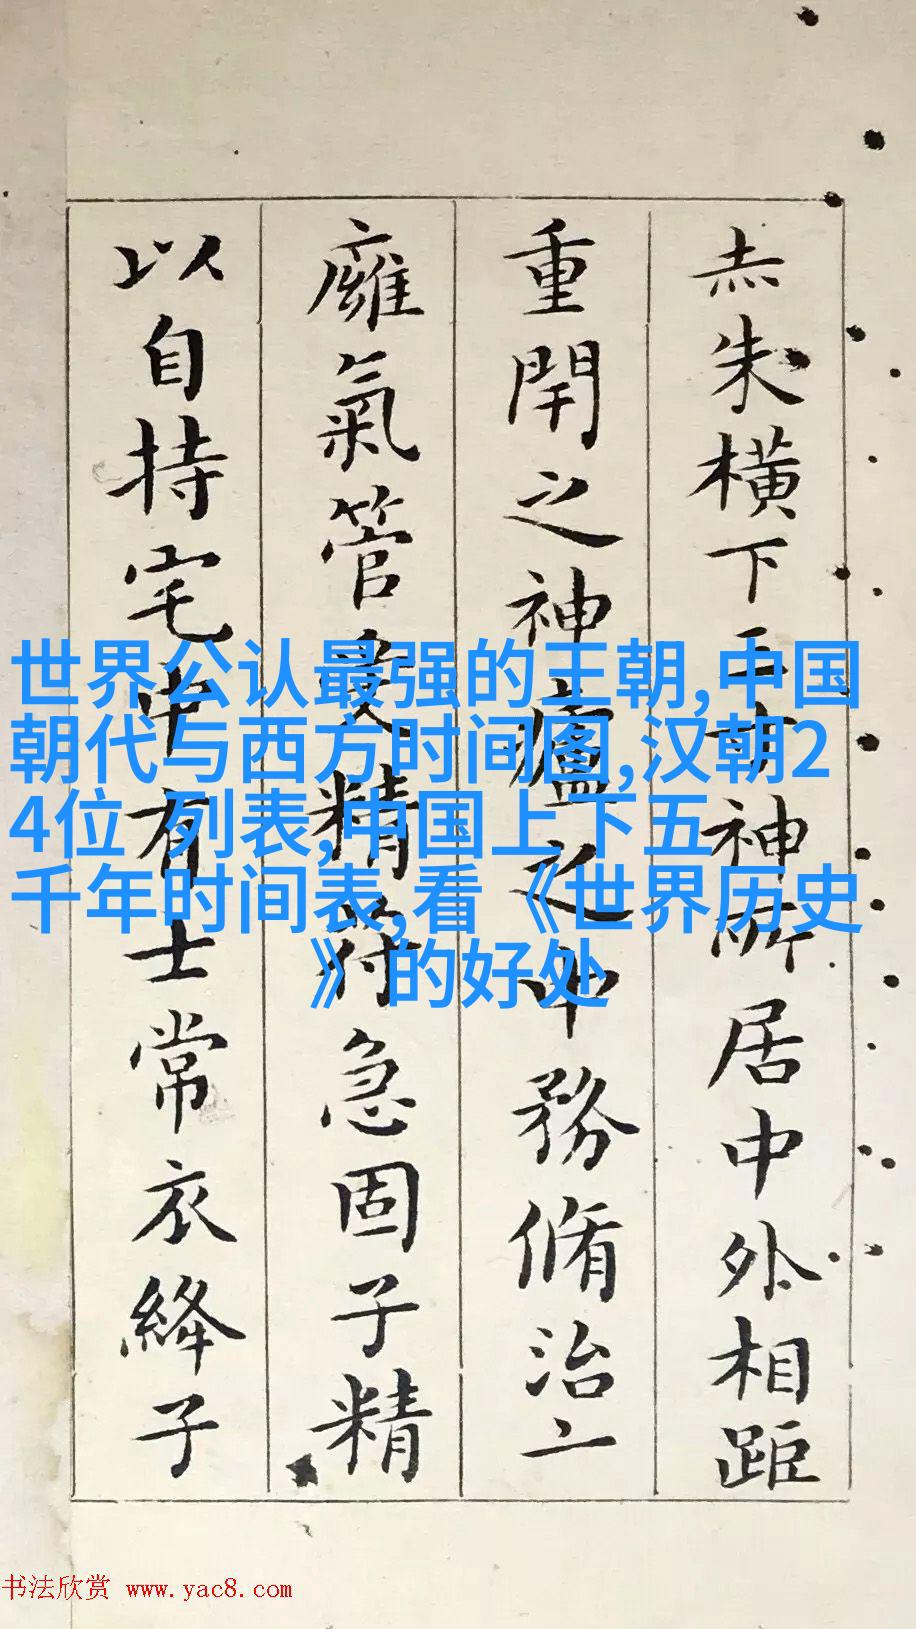 赤朱橫下三寸神所居中外相距
重閇之神廬之中務脩治
膺氣管受精符急固子精
以自持宅中有士常衣絳子
世界公认最强的王朝,中国
朝代与西方时间图,汉朝2
4位 列表,中国上下五
千年时间表,看《世界历史
》的好处
书法欣赏 www.yac8.com